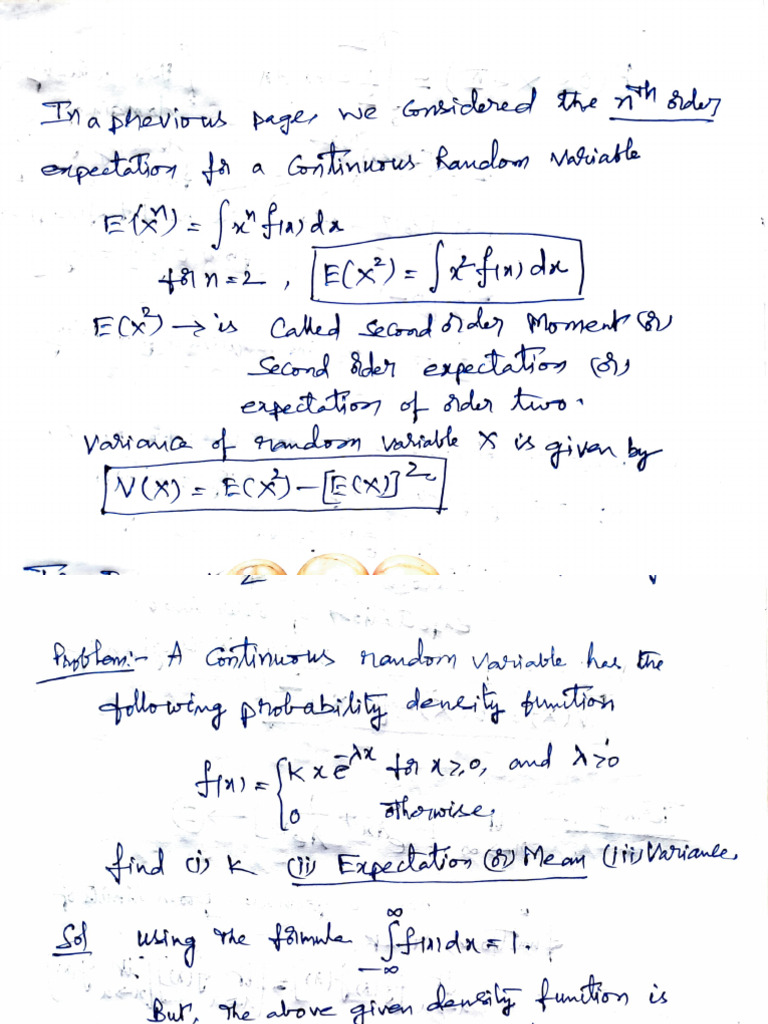 In a previous page, we considered the nth order
expectation for a continuous Random Variable
E(xⁿ) = ∫xⁿ f(x) dx
for n = 2, E(X²) = ∫x² f(x) dx
E(X²) → is called second order Moment (or)
second order expectation (or)
expectation of order two.
Variance of random variable X is given by
V(X) = E(X²) – [E(X)]²
Problem:- A continuous random variable has the
following probability density function
f(x) = { k x e^-λx for x ≥ 0, and λ > 0
0 otherwise,
find (i) K (ii) Expectation (or) Mean (iii) Variance.
Sol using the formula ∫_-∞^∞ f(x) dx = 1.
But, the above given density function is